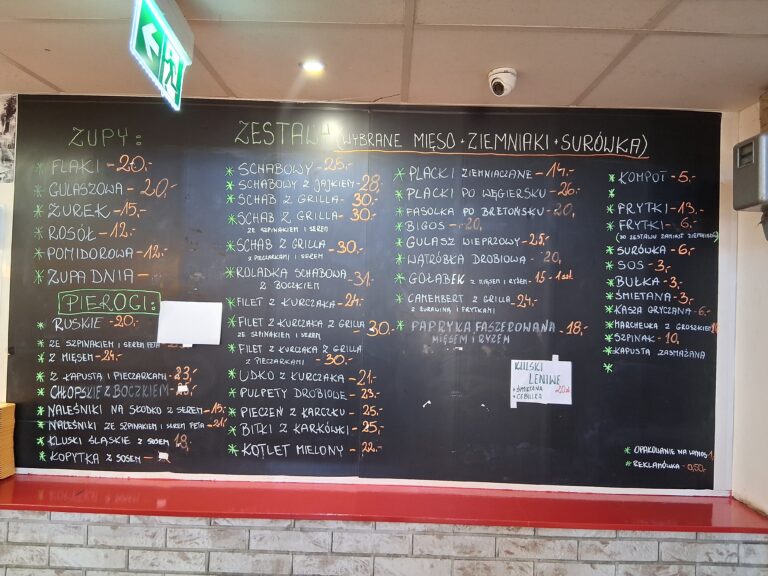 ZUPY:
* FLAKI - 20,-
* GULASZOWA - 20,-
* ŻUREK - 15,-
* ROSÓŁ - 12,-
* POMIDOROWA - 12,-
* ZUPA DNIA -
PIEROGI:
* RUSKIE - 20,-
* ZE SZPINAKIEM I SEREM FETA
* Z MIĘSEM - 24,-
* Z KAPUSTĄ I PIECZARKAMI - 23,-
* CHŁOPSKIE Z BOCZKIEM -
* NALEŚNIKI NA SŁODKO Z SEREM - 15,-
* NALEŚNIKI ZE SZPINAKIEM I SEREM FETA - 21,-
* KLUSKI ŚLĄSKIE Z SOSEM 18,-
* KOPYTKA Z SOSEM -
ZESTAWY (WYBRANE MIĘSO + ZIEMNIAKI + SURÓWKA)
* SCHABOWY - 25,-
* SCHABOWY Z JAJKIEM - 28,-
* SCHAB Z GRILLA - 30,-
* SCHAB Z GRILLA - 30,-
ZE SZPINAKIEM I SEREM
* SCHAB Z GRILLA - 30,-
Z PIECZARKAMI I SEREM
* ROLADKA SCHABOWA - 31,-
Z BOCZKIEM
* FILET Z KURCZAKA - 24,-
* FILET Z KURCZAKA Z GRILLA - 30,-
ZE SZPINAKIEM I SEREM
* FILET Z KURCZAKA Z GRILLA
Z PIECZARKAMI - 30,-
* UDKO Z KURCZAKA - 21,-
* PULPETY DROBIOWE - 23,-
* PIECZEŃ Z KARCZKU - 25,-
* BITKI Z KARKÓWKI - 25,-
* KOTLET MIELONY - 22,-
* PLACKI ZIEMNIACZANE - 17,-
* PLACKI PO WĘGIERSKU - 26,-
* FASOLKA PO BRETOŃSKU - 20,
* BIGOS - 20,
* GULASZ WIEPRZOWY - 25,-
* WĄTRÓBKA DROBIOWA - 20,
* GOŁĄBEK Z MIĘSEM I RYŻEM - 15 - 1 szt.
* CAMEMBERT Z GRILLA - 24,-
Z ŻURAWINĄ I FRYTKAMI
* PAPRYKA FASZEROWANA - 18,-
MIĘSEM I RYŻEM
KLUSKI
LENIWE
* ŚMIETANA
* CEBULKA
* KOMPOT - 5,-
*
* FRYTKI - 13,-
* FRYTKI - 6,-
(DO ZESTAWU ZAMIAST ZIEMNIAKÓW)
* SURÓWKA - 6,-
* SOS - 3,-
* BUŁKA - 3,-
* ŚMIETANA - 3,-
* KASZA GRYCZANA - 6,-
* MARCHEWKA Z GROSZKIEM
* SZPINAK - 10,
* KAPUSTA ZASMAŻANA
*
* OPAKOWANIE NA WYNOS 1,
* REKLAMÓWKA - 0,50,-